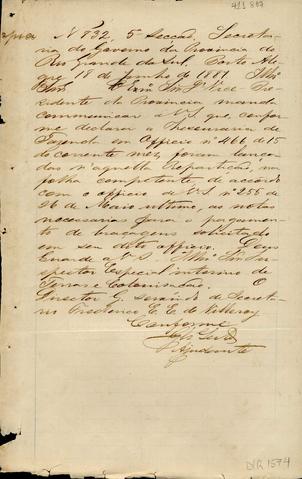 411 807
Copia
N. 732. 5ª Secção. Secreta-
ria do Governo da Provincia do
Rio Grande do Sul, Porto Ale-
gre 18 de Junho de 1881. Illmo
Snr. Exmo Snr. Dr. Vice-Pre-
sidente da Provincia manda
communicar a V.S. que, confor-
me declarou a Thesouraria de
Fazenda em officio nº 466, de 15
do corrente mez, foram lança-
das n'aquella Repartição, na
folha competente de accordo
com o officio de V.S. nº 255 de
26 de Maio ultimo, as notas
necessarias para o pagamen-
to de bagagens solicitado
em seu dito officio. Deos
Guarde a V.S. Illmo Snr. Ins-
pector Especial interino de
Terras e Colonisação. O
Director G. servindo de Secreta-
rio
Conforme
Ajudante
DIR 1574